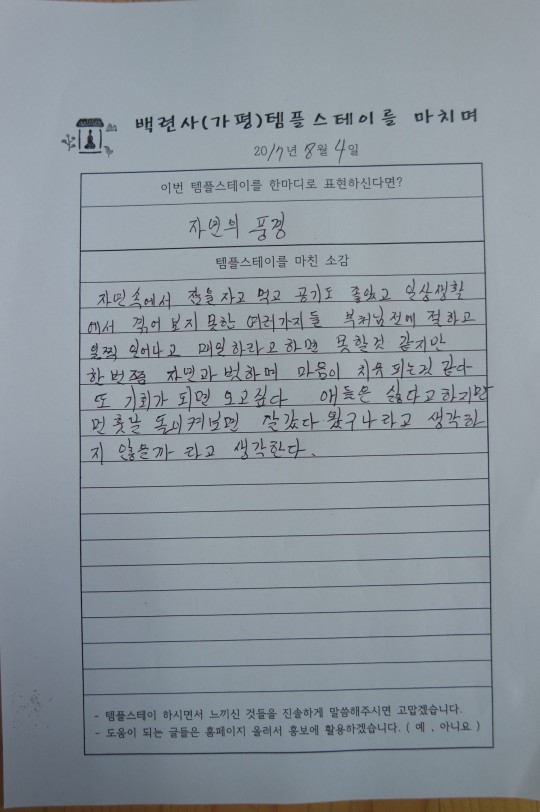 백련사(가평)템플스테이를 마치며
2017년 8월 4일
이번 템플스테이를 한마디로 표현하신다면?
자연의 풍경
템플스테이를 마친 소감
자연속에서 잠을 자고 먹고 공기도 좋았고 일상생활
에서 겪어 보지 못한 여러가지들 부처님전에 절하고
일찍 일어나고 매일하라고 하면 못할것 같지만
한번쯤 자연과 벗하며 마음이 치유 되는것 같다
또 기회가 되면 오고싶다 애들은 싫다고하지만
먼훗날 돌이켜보면 잘갔다 왔구나 라고 생각하
지 않을까 라고 생각한다.
- 템플스테이 하시면서 느끼신 것들을 진솔하게 말씀해주시면 고맙겠습니다.
- 도움이 되는 글들은 홈페이지 올려서 홍보에 활용하겠습니다. ( 예 , 아니요 )